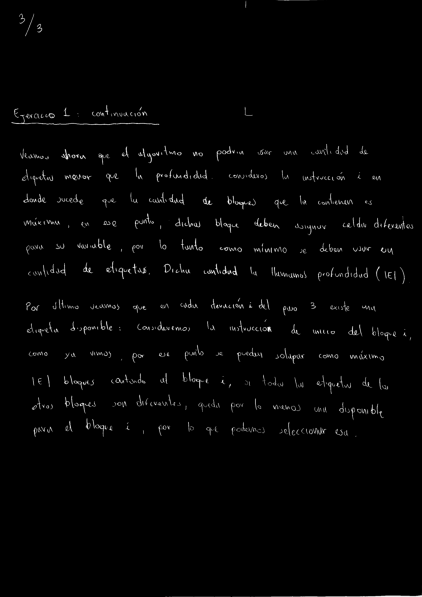 3/3
Ejercicio 1: continuación L
Veamos ahora que el algoritmo no podria usar una cantidad de
etiquetas menor que la profundidad. consideros la instrucción i en
donde sucede que la cantidad de bloques que la contienen es
máxima, en ese punto, dichos bloque deben asignar celdas diferentes
para su variable, por lo tanto como mínimo se deben usar esa
cantidad de etiquetas. Dicha cantidad la llamamos profundidad (|E|)
Por último veamos que en cada iteración i del paso 3 existe una
etiqueta disponible: Consideremos la instrucción de inicio del bloque i,
como ya vimos, por ese punto se pueden solapar como máximo
|E| bloques contando al bloque i, si todas las etiquetas de los
otros bloques son diferentes, queda por lo menos una disponible
para el bloque i, por lo que podemos seleccionar esa.